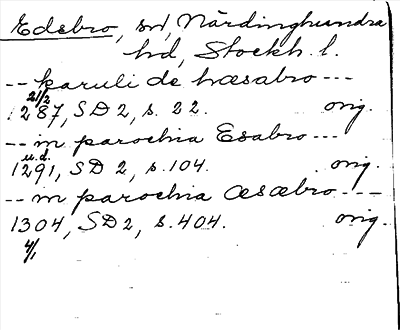 Edebro, sn, Närdinghundra
hd, Stockh. l.
-- karuli de hæsabro ---
21/2
1287, SD 2, s. 22. orig.
-- in parochia Esabro ---
u.d.
1291, SD 2, s. 104. orig.
-- in parochia Æsæbro ----
1304, SD 2, s. 404. orig.
4/1